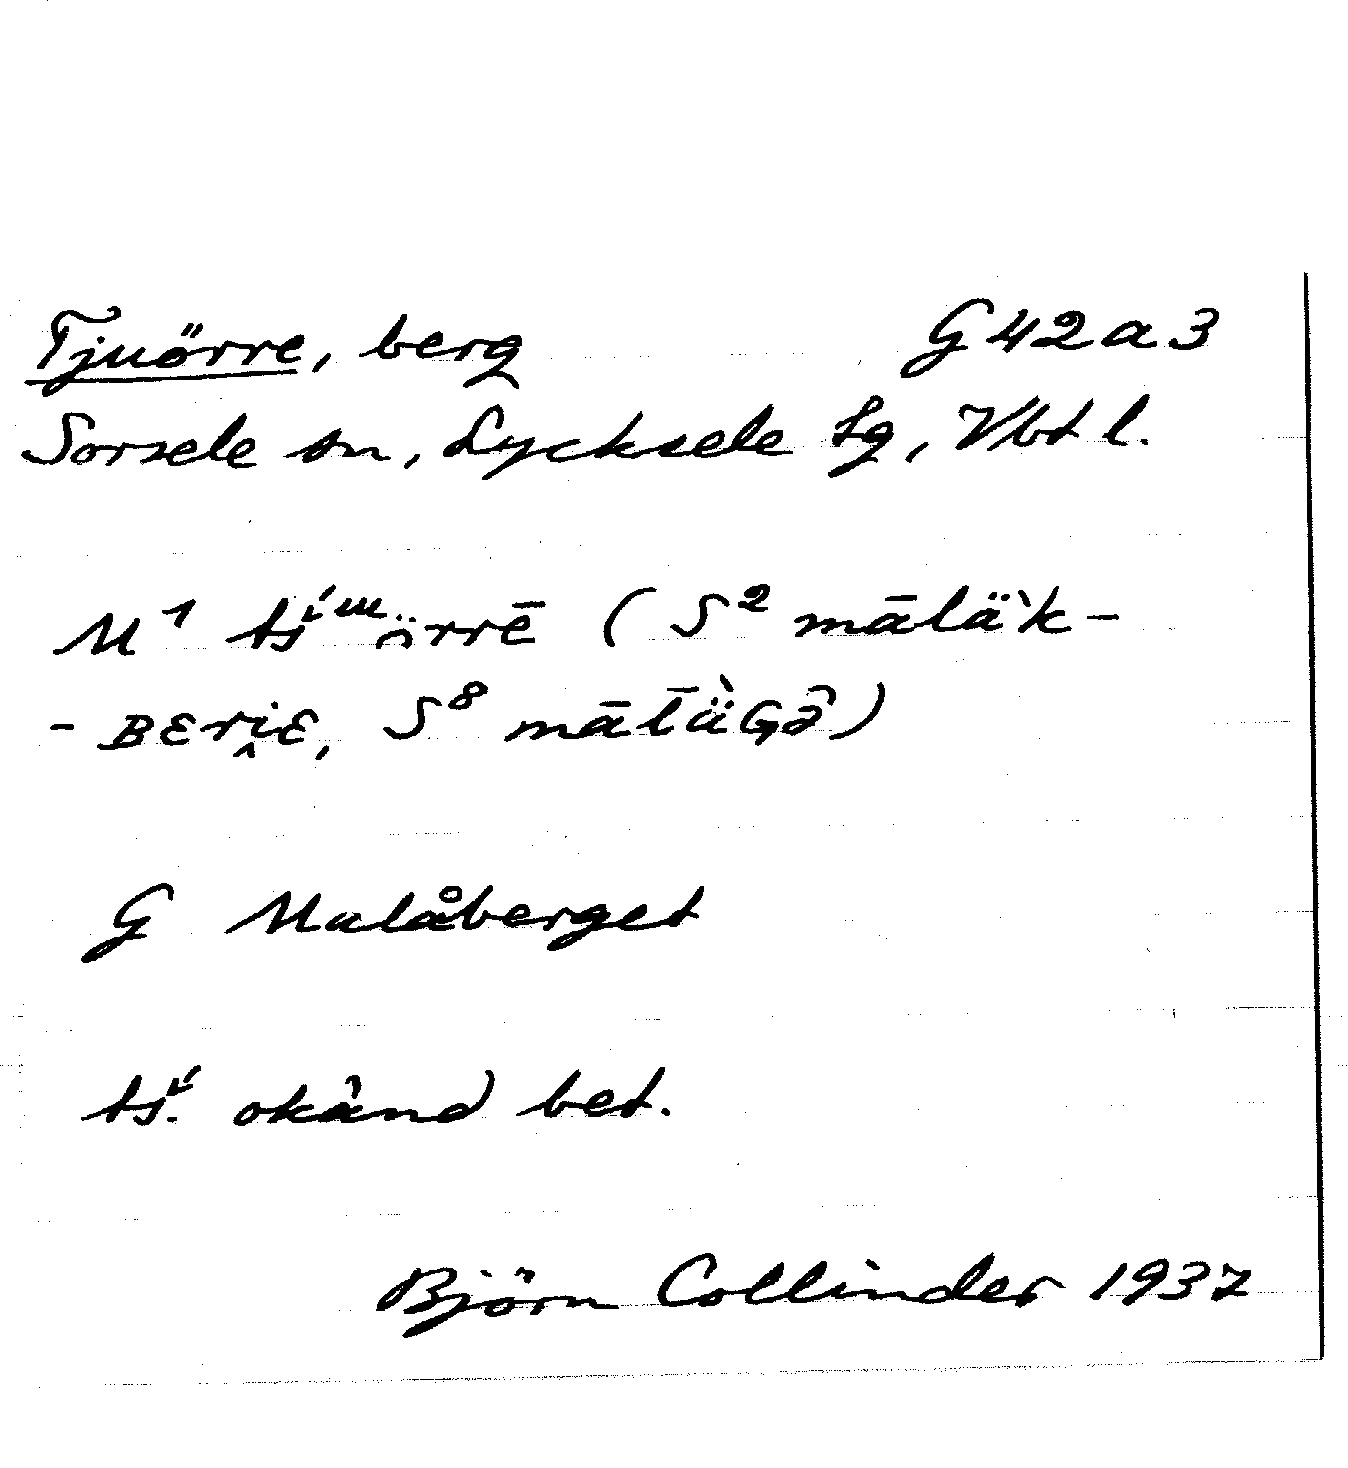 Tjuörre, berg G42a3
Sorsele sn, Lycksele lg, Vbtl.
(S² mālä̀k-
-BEri̭E, S⁸
G Malåberget
okänd bet.
Björn Collinder 1937